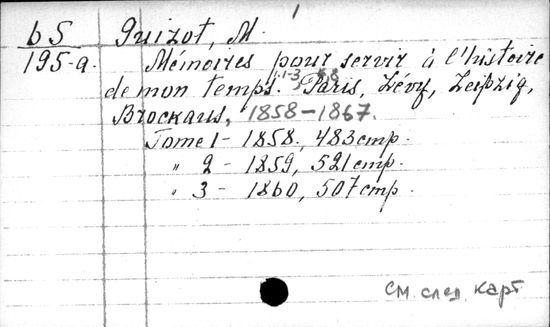 1
65 Guizot, M.
195-a. Mémoires pour servir à l'histoire
de mon temps. т.1-3, 5, 8 Paris, Lévy, Leipzig,
Brockaus, 1858-1867.
Tome 1 - 1858, 483 стр.
" 2 - 1859, 521 стр.
" 3 - 1860, 507 стр.
см. след. карт